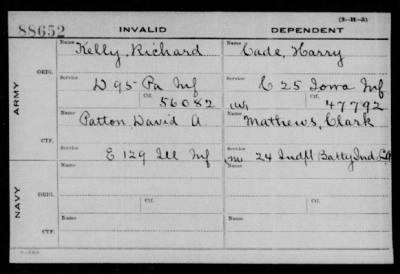 (3-H-3)
88652 INVALID DEPENDENT
Name Kelly, Richard Name Cade, Harry
ORIG. Service D 95 Pa Inf Service C 25 Iowa Inf
Ctf. 56082 (W) Ctf. 47792
ARMY
Name Patton, David A. Name Mathews, Clark
CTF. Service E 129 Ill Inf Service (M) 24 Indpt Batty Ind L A
NAVY
Name Name
ORIG. Service Ctf. Service Ctf.
Name Name
CTF. Service Service